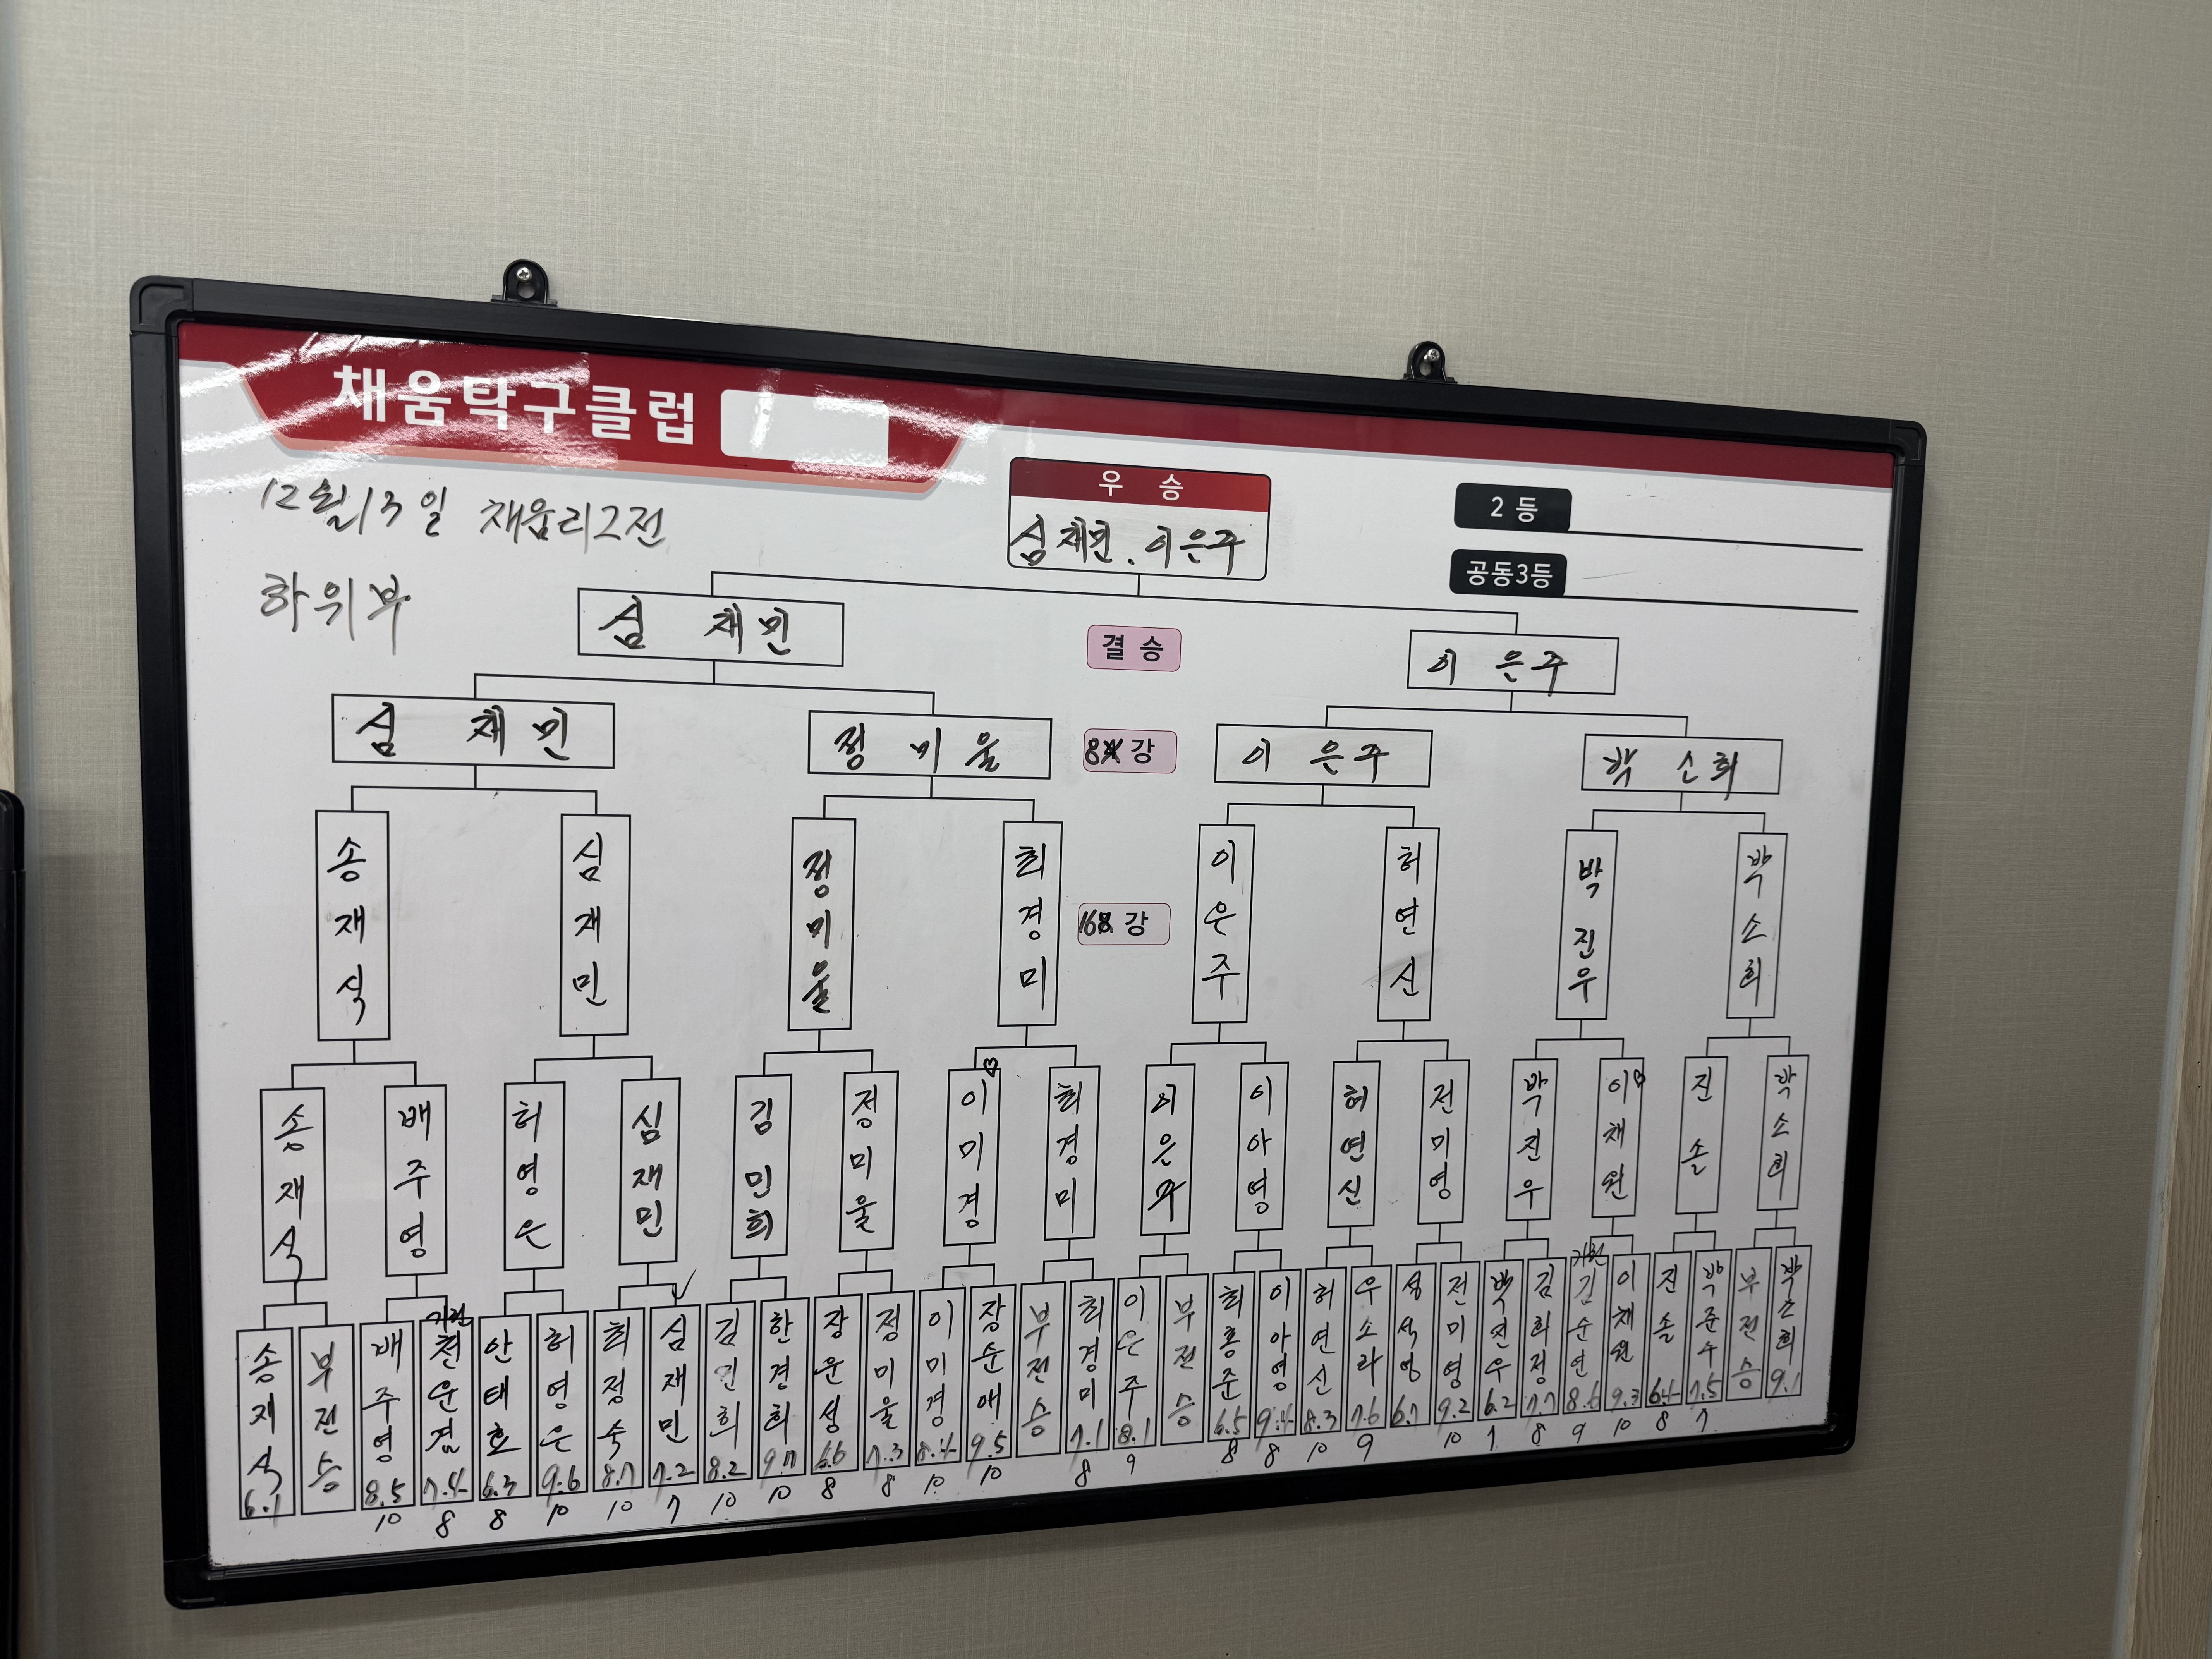 채움탁구클럽
12월 13일 채움리그전
하위부
우 승
심재민. 이은주
2 등
공동3등
심 재민
결 승
이 은주
심 재민
정 미 울
8강
이 은주
박 소희
송재식
심재민
정미울
최경미
16강
이은주
허연신
박진우
박소희
송재식
배주영
허영은
심재민
김민희
정미울
이미경
최경미
이은주
이아영
허연신
전미영
박진우
이채원
진솔
박소희
송재식 6.1
부전승
배주영 8.5 10
기권 천운겸 7.4 8
안태호 6.3 8
허영은 9.6 10
최정숙 8.7 10
심재민 7.2 7
김민희 8.2 10
한경희 9.7 10
장운성 6.6 8
정미울 7.3 8
이미경 8.4 10
장순애 9.5 10
부전승
최경미 7.1 8
이은주 8.1 9
부전승
최홍준 6.5 8
이아영 9.4 8
허연신 8.3 10
우소라 7.6 9
6.7
전미영 9.2 10
박진우 6.2 7
김희정 7.7 8
기권 김순연 8.6 9
이채원 9.3 10
진솔 6.4 8
박준수 7.5 7
부전승
박소희 9.1